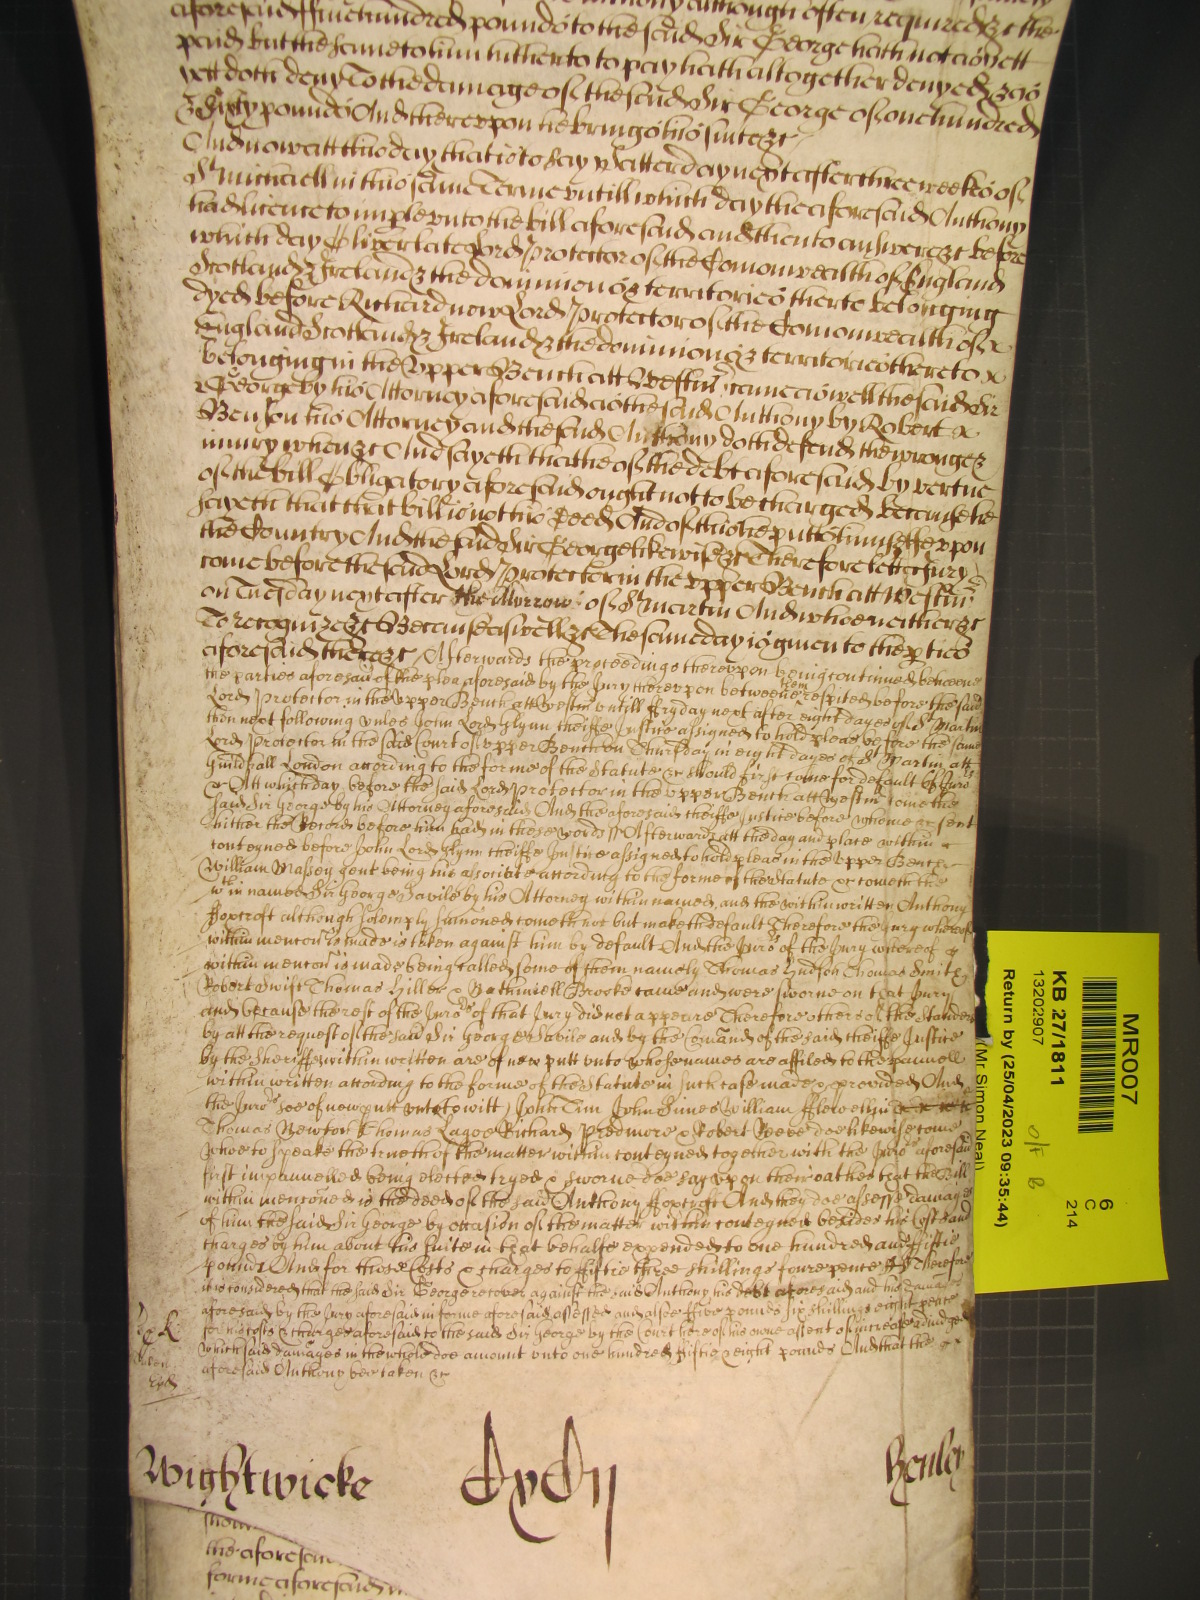 aforesaid ffive hundred pounds to the said Sir George hath not as yett
paid but the same to him hitherto to pay hath altogether denyed & as
yett doth deny To the damage of the said Sir George of one hundred
& ffifty pounds And thereupon he brings his suite &c
And now att this day that is to say Satterday next after three weekes of
St Michaell in this same Terme untill which day the aforesaid Anthony
had licence to imple unto the bill aforesaid and then to answere &c before
which day Oliver late Lord Protector of the Comonwealth of England
Scotland & Ireland & the dominions & territories therto belonging
dyed before Richard now Lord Protector of the Comonwealth of x
England Scotland & Ireland & the dominions & territories thereto x
belonging in the Upper Bench att Westmr came as well the said Sir
George by his Attorney aforesaid as the said Anthony by Robert x
Benson his Attorney and the said Anthony doth defend the wronge &
iniury when &c And sayeth that he of the debt aforesaid by vertue
of the bill Obligatory aforesaid ought not to be charged because he
sayeth that that bill is not his Deed And of this he putts himselfe upon
the Country And the said Sir George likewise &c Therefore lett a Jury
come before the said Lord Protector in the upper Bench att Westmr
on Tuesday next after the Morrow of St Martin And who neither &c
To recognize &c Because aswell &c The same day is given to the pties
aforesaid there &c / Afterwards the proceedings thereupon being continued betweene
the parties aforesaid of the plea aforesaid by the Jury thereupon betweene them respited before the said
Lord Protector in the Upper Bench att Westmr untill ffryday next after eight dayes of St Martin
then next following unles John Lord Glynn cheiffe Justice assigned to hold pleas before the same
Lord Protector in the said Court of Upper Bench on Thursday in eight dayes of St Martin att
Guildhall London according to the forme of the Statute &c should first come for default of Juro
&c Att which day before the said Lord Protector in the upper Bench att Westmr come the
said Sir George by his Attorney aforesaid And the aforesaid cheiffe Justice before whome &c sent
hither the Record before him had in these words ss Afterwards att the day and place within x
conteyned before John Lord Glynn cheiffe Justice assigned to hold pleas in the Upper Bench
William Massey gent being his associate according to the forme of the Statute &c cometh the
within named Sir George Savile by his Attorney within named, and the within written Anthony
ffoxcroft although solemply sumoned cometh not but maketh default Therefore the Jury whereof
within mencon is made is taken against him by default And the Juro of the Jury whereof
within mencon is made being called some of them namely Thomas Hudson Thomas Smith
Robert Swift Thomas Hiller & Nathaniell Brooke came and were sworne on that Jury
and because the rest of the Juro of that Jury did not appeare Therefore others of the standers
by att the request of the said Sir George Savile and by the Comand of the said cheiffe Justice
by the Sheriffs within written are of new putt unto whose names are affiled to the pannell
within written according to the forme of the Statute in such case made & provided And
the Juro soe of new putt unto to witt John Tim John Simes William fflewellin
Thomas Newton Thomas Lagoe Richard Predmore & Robert Reeve doe likewise come
who to speake the trueth of the matter within conteyned together with the Juro aforesaid
first impannelled being elected tryed & sworne doe say upon their oathes that the Bill
within mencioned is the deed of the said Anthony ffoxcroft And they doe assesse damages
of him the said Sir George by occasion of the matter within conteyned besides his Costs and
charges by him about his suite in that behalfe expended to one hundred and ffiftie
pounds And for those Costs & charges to ffiftie three shillings foure pence Therefore
it is considered that the said Sir George recover against the said Anthony his debt aforesaid and his damages
aforesaid by the Jury aforesaid in forme aforesaid assessed and alsoe ffive pounds six shillings eight pence
for his costs & charges aforesaid to the said Sir George by the Court here of his owne assent of increase adiudged
which said damages in the whole doe amount unto one hundred ffiftie & eight pounds And that the
aforesaid Anthony bee taken &c
Wightwicke
Henley
the aforesaid
forme aforesaid
MR007
KB 27/1811
13202907
Return by (25/04/2023 09:35:44)
(Mr Simon Neal)
6
C
214